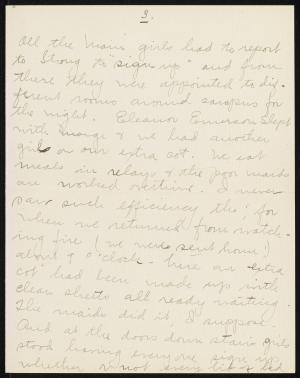 3.
All the 'main' girls had to report
to Strong to "sign up" and from
there they were appointed to dif-
ferent rooms around campus for
the night. Eleanor Emerson slept
with Marge & we had another
girl on our extra cot. We eat
meals in relays & the poor maids
are worked overtime. I never
saw such efficiency tho', for
when we returned from watch-
ing fire (we were sent home)
about 9 o'clock - here an extra
cot had been made up with
clean sheets all ready waiting.
The maids did it, I suppose.
And at the doors down stairs girls
stood having everyone sign up
whether or not every a bed